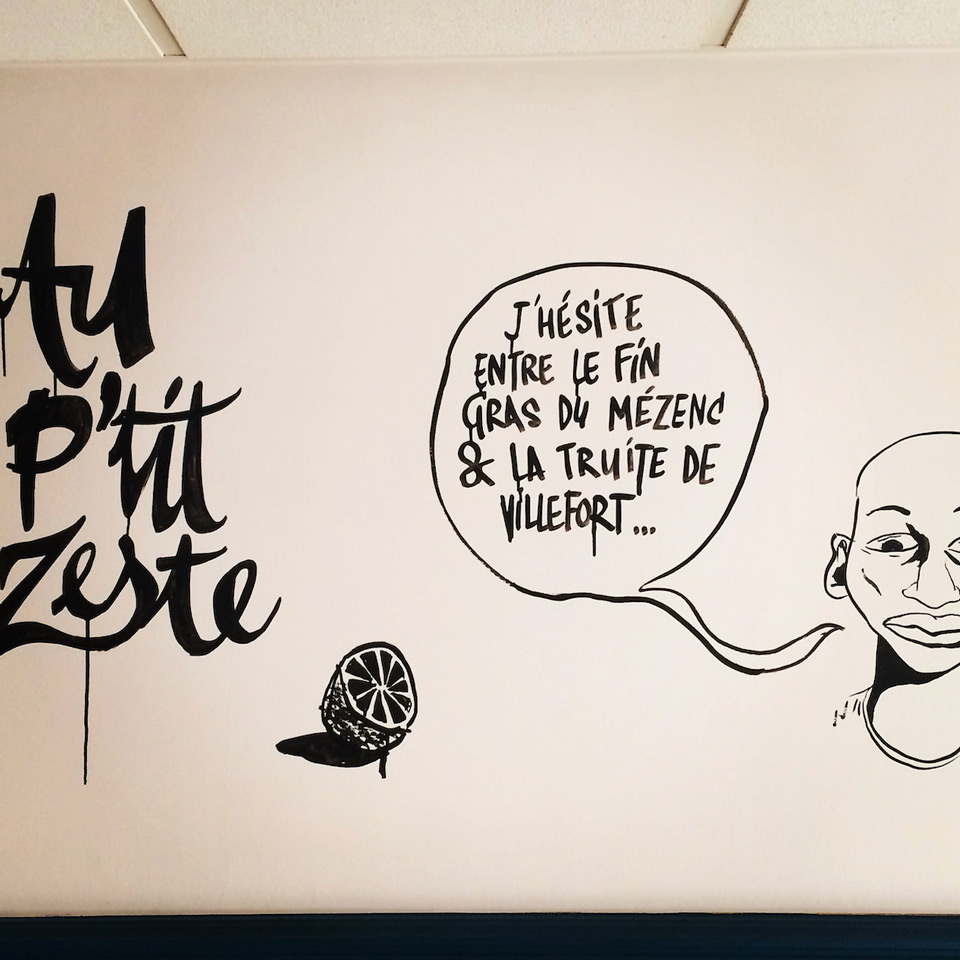 Au
P'tit
Zeste
J'HÉSITE
ENTRE LE FIN
GRAS DU MÉZENC
& LA TRUITE DE
VILLEFORT...